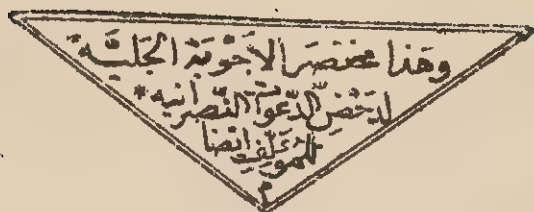 وهذا مختصر الاجوبة الجلية
لدحض الدعوات النصرانية *
للمؤلف ايضا
م